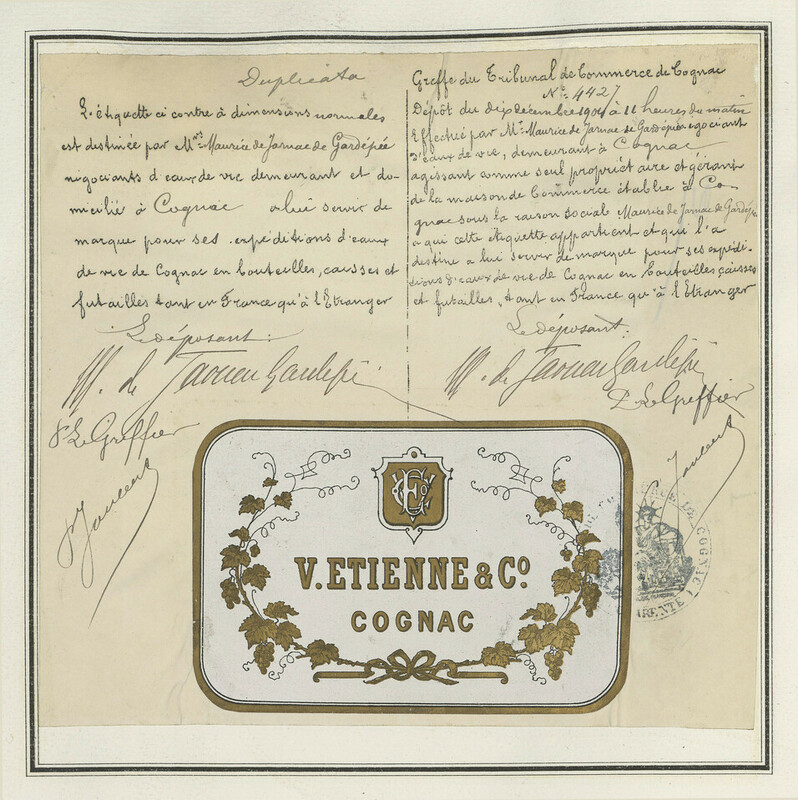 Duplicata
L'étiquette ci contre à dimensions normales
est destinée par Mrs Maurice de Jarnac de Gardépée
négociants d'eaux de vie demeurant et do-
micilié à Cognac a lui servir de
marque pour ses expéditions d'eaux
de vie de Cognac en bouteilles, caisses et
futailles tant en France qu'à l'Etranger
Le déposant:
M. de Jarnac Gardépée
P. Le Greffier
Greffe du Tribunal de Commerce de Cognac
No: 4427
Dépôt du dix décembre 1904 à 11 heures du matin
Effectué par Mr. Maurice de Jarnac de Gardépée négociant
d'eaux de vie, demeurant à Cognac
agissant comme seul propriétaire et gérant
de la maison de Commerce établie à Co-
gnac sous la raison social Maurice de Jarnac de Gardépée
a qui cette étiquette appartient et qui l'a
destine a lui servir de marque pour ses expédi-
tions d'eaux de vie de Cognac en bouteilles caisses
et futailles, tant en France qu'à l'Etranger
Le déposant:
M. de Jarnac Gardépée
P. Le Greffier
V. ETIENNE & Co
COGNAC
DE COGNAC